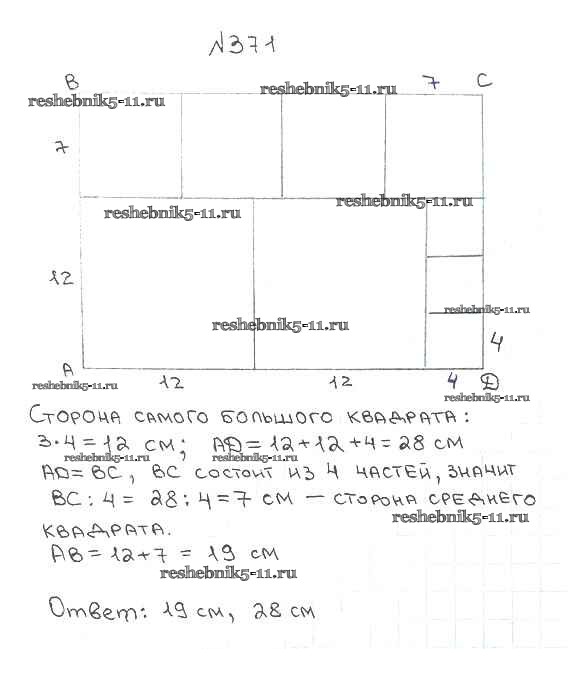 №371
B
7
C
reshebnik5-11.ru
reshebnik5-11.ru
7
reshebnik5-11.ru
reshebnik5-11.ru
12
reshebnik5-11.ru
reshebnik5-11.ru
4
A
12
12
4
D
reshebnik5-11.ru
reshebnik5-11.ru
Сторона самого большого квадрата:
3·4=12 см; AD=12+12+4=28 см
reshebnik5-11.ru
reshebnik5-11.ru
AD=BC, BC состоит из 4 частей, значит
BC:4= 28:4=7 см – сторона среднего
reshebnik5-11.ru
квадрата.
AB=12+7=19 см
reshebnik5-11.ru
Ответ: 19 см, 28 см